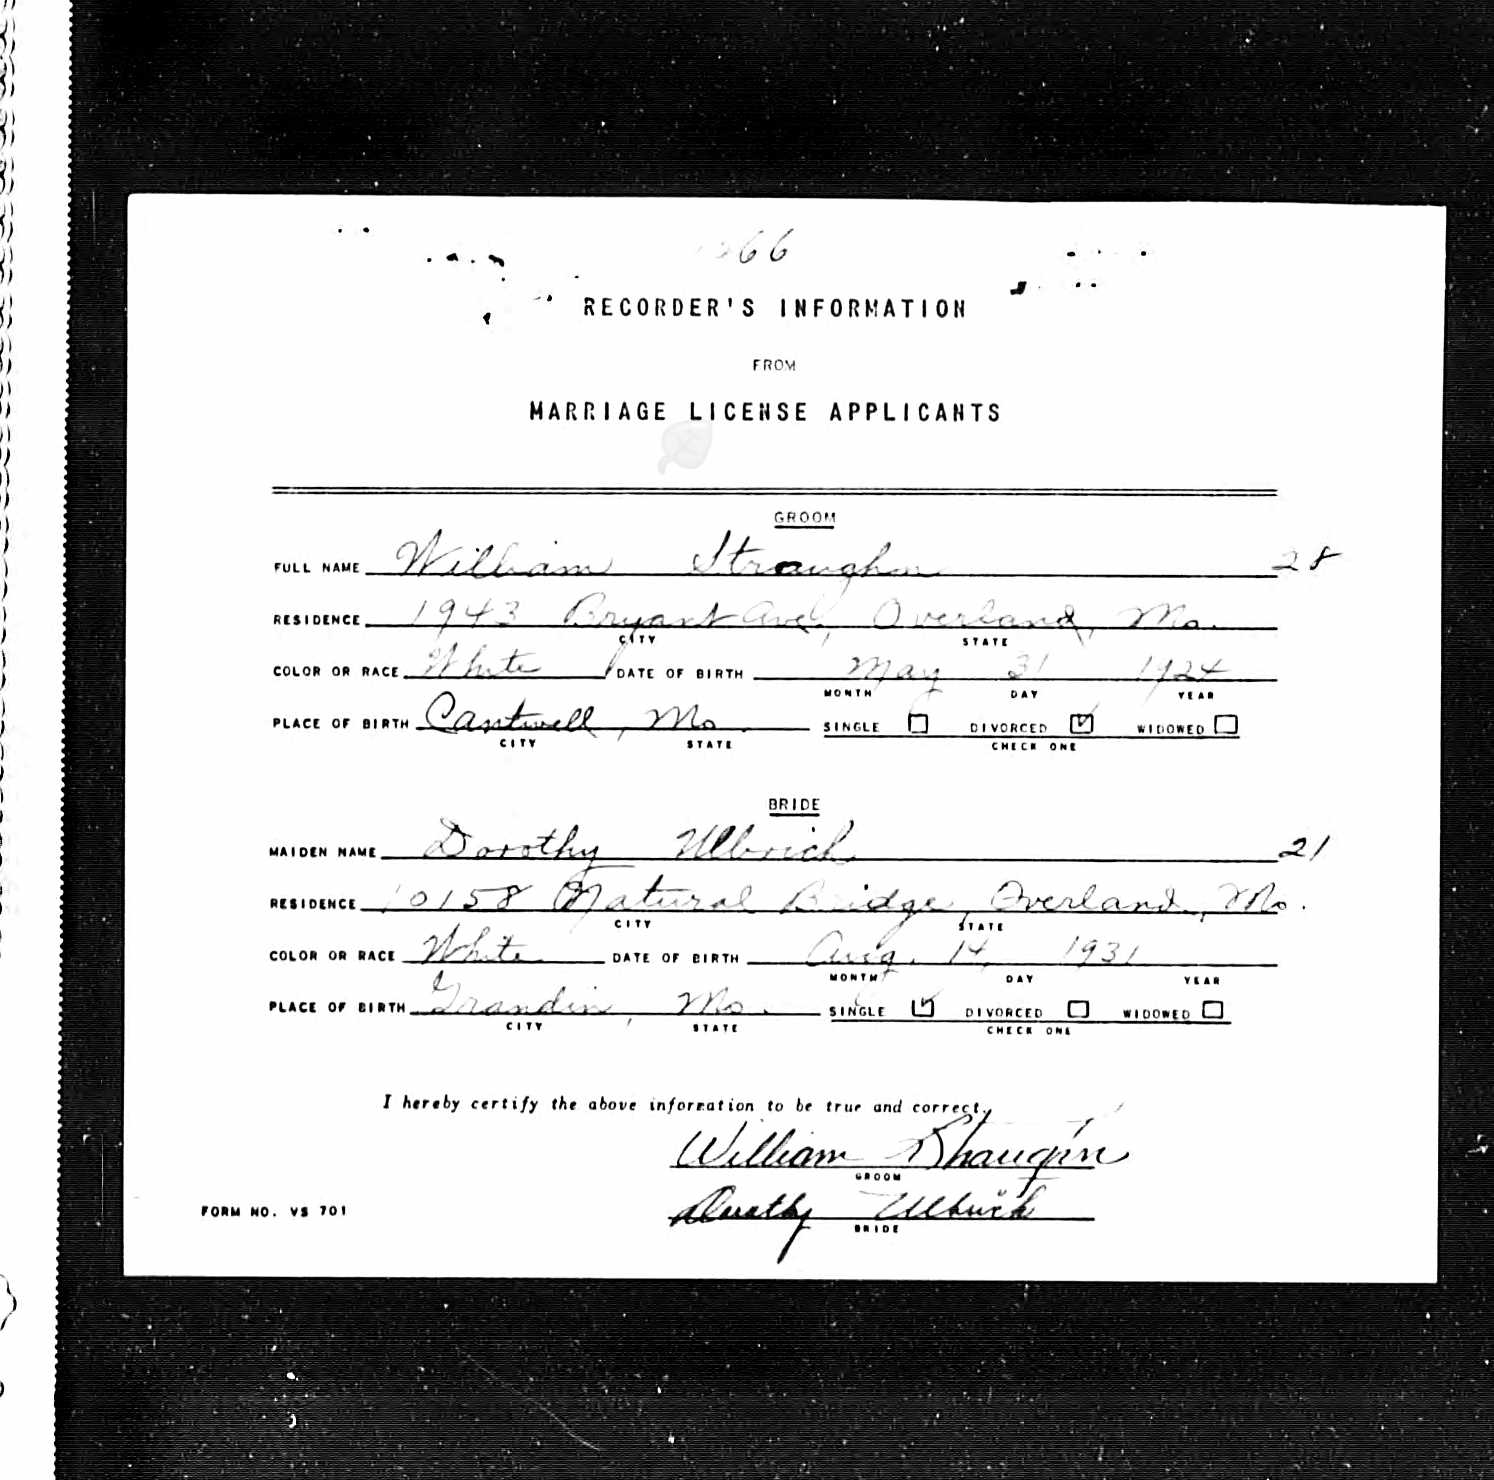 66
RECORDER'S INFORMATION
FROM
MARRIAGE LICENSE APPLICANTS
GROOM
FULL NAME William Straughn 28
RESIDENCE 1943 Bryant Ave, Overland, Mo.
CITY STATE
COLOR OR RACE White DATE OF BIRTH May 31 1924
MONTH DAY YEAR
PLACE OF BIRTH Cantwell, Mo. SINGLE DIVORCED WIDOWED
CITY STATE CHECK ONE
BRIDE
MAIDEN NAME Dorothy Ulbrich 21
RESIDENCE 10158 Natural Bridge, Overland, Mo.
CITY STATE
COLOR OR RACE White DATE OF BIRTH Aug. 14, 1931
MONTH DAY YEAR
PLACE OF BIRTH Grandin, Mo. SINGLE DIVORCED WIDOWED
CITY STATE CHECK ONE
I hereby certify the above information to be true and correct.
William Straughn
GROOM
Dorothy Ulbrich
FORM NO. VS 701
BRIDE